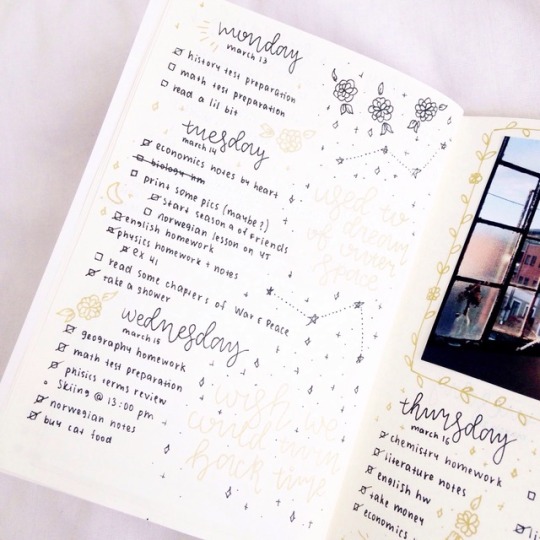 monday
march 13
history test preparation
math test preparation
read a lil bit
tuesday
march 14
economics notes by heart
biology hw
print some pics (maybe?)
start season 2 of Friends
norwegian lesson on YT
english homework
physics homework + notes
ex 41
read some chapters of War & Peace
take a shower
used to
dream
of outer
space
wednesday
march 15
geography homework
math test preparation
phisics terms review
Skiing @ 13:00 pm
norwegian notes
buy cat food
wish we
could turn
back time
thursday
march 16
chemistry homework
literature notes
english hw
take money
economics